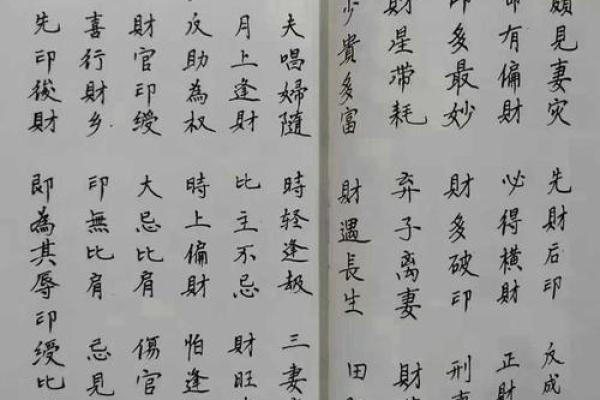 頗見妻灾 先財后印 反成
有偏財 必得橫財 正財
多最妙 財多破印 刑
財星滞耗 弃子离妻 財
少貴多富 財遇長生 田
夫唱婦隨 時轻逢劫 三妻
月上逢財 比主不忌 財旺
反助為权 時上偏財 怕逢
財官印绶 大忌比肩 傷官
喜行財乡 印無比肩 忌見
先印後財 即為其辱 印绶比